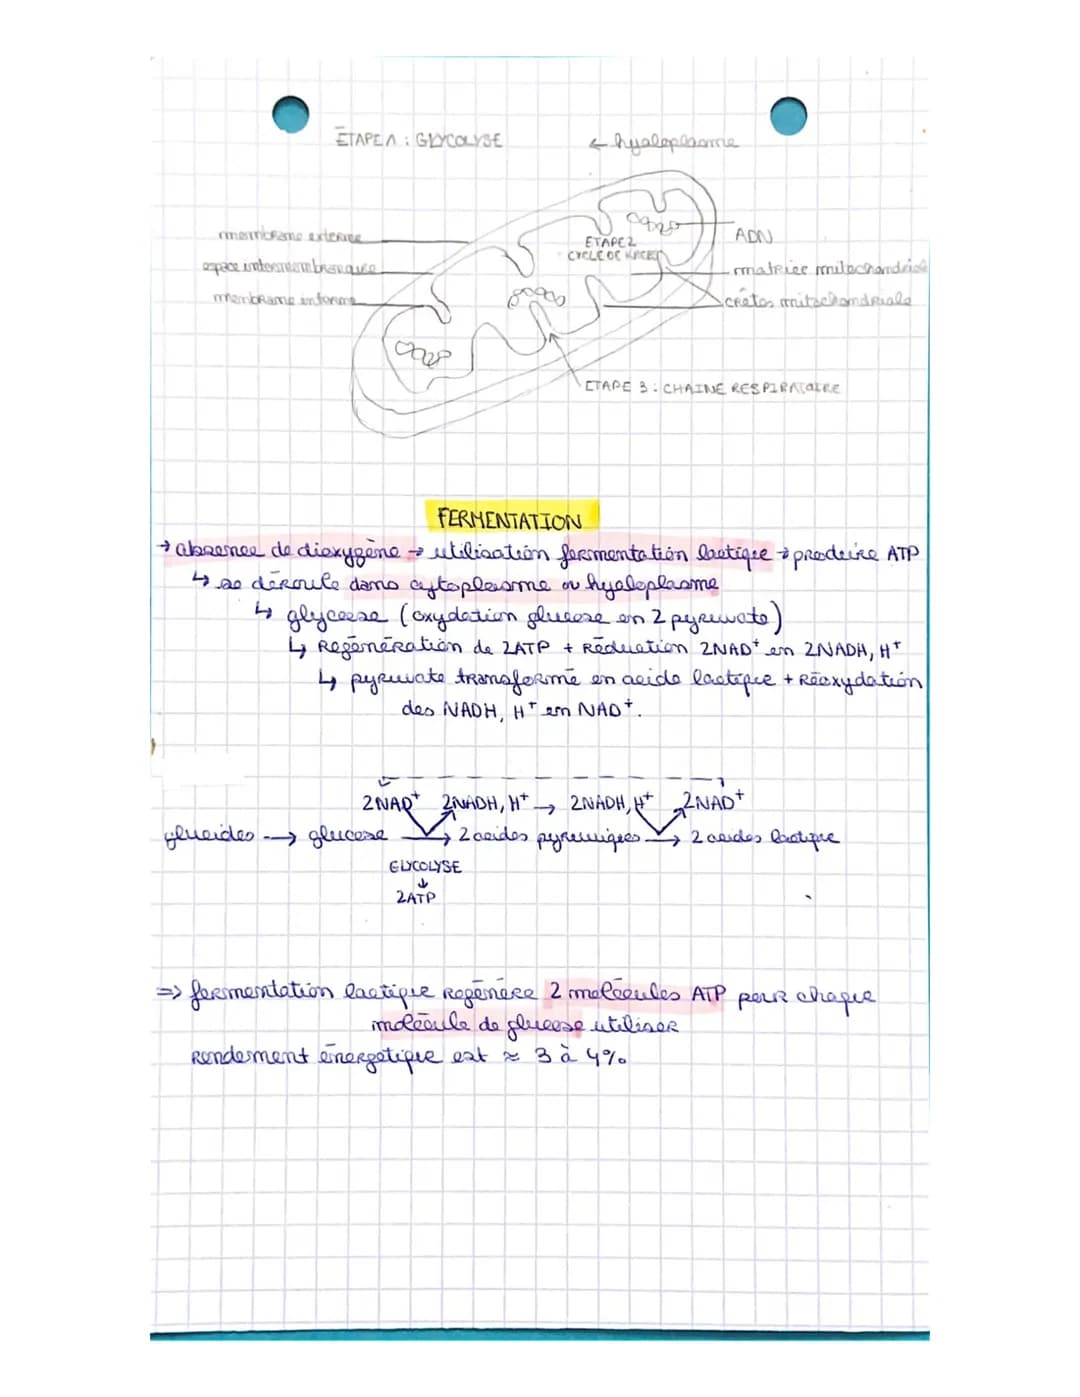 ÉTAPE 1 : GLYCOLYSE
← hyaloplasme
membrane externe
espace intermembranaire
membrane interne
ETAPE 2
CYCLE DE KREBS
ADN
matrice mitochondriale
crêtes mitochondriale
ETAPE 3 : CHAINE RESPIRATOIRE
FERMENTATION
→ absence de dioxygène → utilisation fermentation lactique → produire ATP
↳ se déroule dans cytoplasme ou hyaloplasme
↳ glycose (oxydation glucose en 2 pyruvate)
↳ Régénération de 2ATP + Réduction 2NAD⁺ en 2NADH, H⁺
↳ pyruvate transformé en acide lactique + Réoxydation
des NADH, H⁺ en NAD⁺.
2NAD⁺ 2NADH, H⁺ → 2NADH, H⁺ 2NAD⁺
glucides → glucose → 2 acides pyruviques → 2 acides lactique
GLYCOLYSE
↓
2ATP
⇒ fermentation lactique Régénère 2 molécules ATP pour chaque
molécule de glucose utiliser
Rendement énergétique est ≈ 3 à 4%